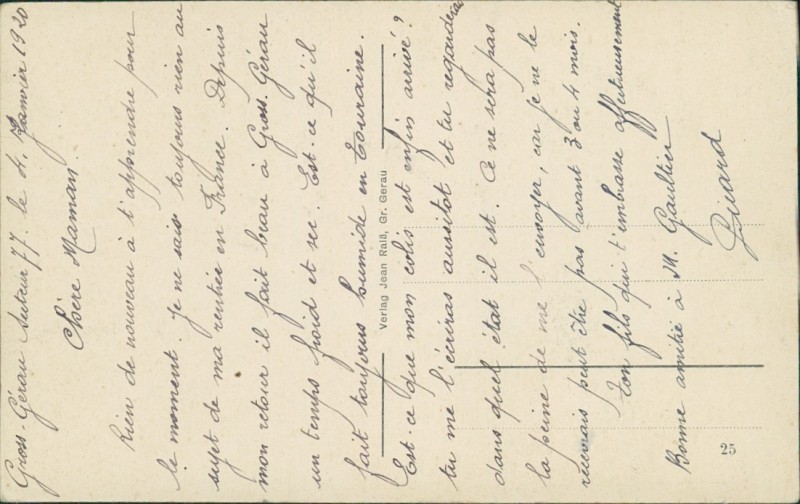 Gross-Gérau Secteur 77. le 4. Janvier 1920
Chère Maman.
Rien de nouveau à t'apprendre pour
le moment. Je ne sais toujours rien au
sujet de ma rentrée en France. Depuis
mon retour il fait beau à Gross. Gérau
un temps froid et sec. Est-ce qu'il
fait toujours humide en Touraine.
Est-ce que mon colis est enfin arrivé?
tu me l'écriras aussitot et tu regarderas
dans quel état il est. Ce ne sera pas
la peine de me l'envoyer, car je ne le
recevrais peut être pas avant 3 ou 4 mois.
Ton fils qui t'embrasse affectueusement
Bonne amitié à M. Gaultier
Verlag Jean Raiß, Gr. Gerau
25